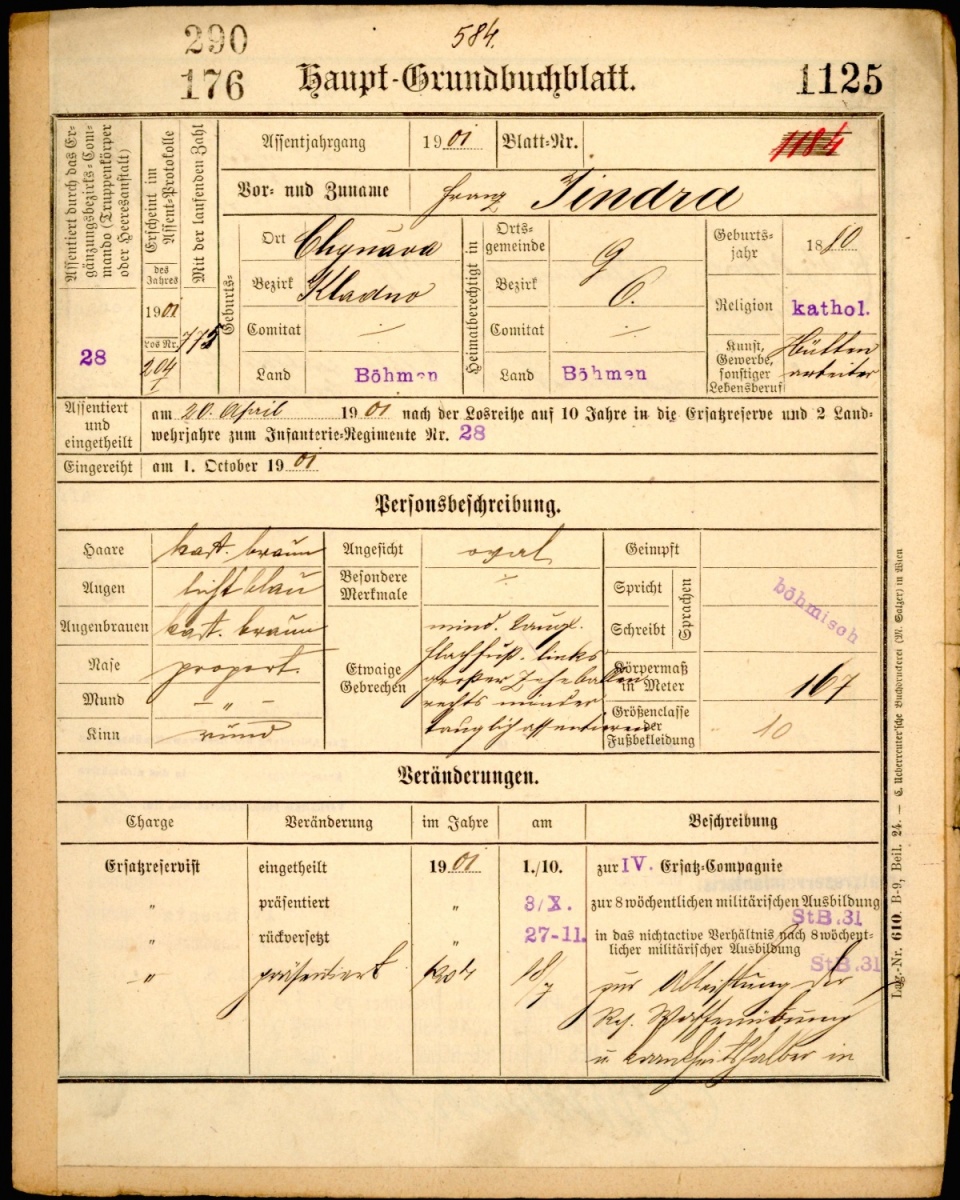 290
584.
176
Haupt-Grundbuchblatt.
1125
Assentiert durch das Er-
gänzungsbezirks-Com-
mando (Truppenkörper
oder Heeresanstalt)
28
Erscheint im
Assent-Protokolle
des
Jahres
1901
Los Nr.
204
I
Mit der laufenden Zahl
775
Assentjahrgang
1901
Blatt-Nr.
1184
Vor- und Zuname
Franz Jindra
Geburts-
Ort
Chyňava
Bezirk
Kladno
Comitat
Land
Böhmen
Heimatberechtigt in
Orts-
gemeinde
Bezirk
Comitat
Land
Böhmen
Geburts-
jahr
1880
Religion
kathol.
Kunst,
Gewerbe,
sonstiger
Lebensberuf
Hütten
arbeiter
Assentiert
und
eingetheilt
am 20. April 1901 nach der Losreihe auf 10 Jahre in die Ersatzreserve und 2 Land-
wehrjahre zum Infanterie-Regimente Nr. 28
Eingereiht
am 1. October 1901
Personsbeschreibung.
Haare
kast. braun
Augen
lichtblau
Augenbrauen
kast. braun
Nase
proport.
Mund
– „ –
Kinn
rund
Angesicht
oval
Besondere
Merkmale
Etwaige
Gebrechen
mind. taugl.
Plattfuß links
großer Zehballen
rechts minder
tauglich assentieren
Geimpft
Spricht
Schreibt
Sprachen
böhmisch
Körpermaß
in Meter
167
Größenclasse
der
Fußbekleidung
10
Veränderungen.
Charge
Veränderung
im Jahre
am
Beschreibung
Ersatzreservist
eingetheilt
1901
1./10.
zur IV. Ersatz-Compagnie
"
präsentiert
"
3/X.
zur 8 wöchentlichen militärischen Ausbildung
StB.31
"
rückversetzt
"
27-11.
in das nichtactive Verhältnis nach 8 wöchent-
licher militärischer Ausbildung
StB.31
– " –
präsentiert
1904
18/7
zur Ableistung der
Waffenübung
u krankheitshalber in
Lag.-Nr. 610. B-9, Beil. 24. – C. Ueberreuter'sche Buchdruckerei (M. Salzer) in Wien